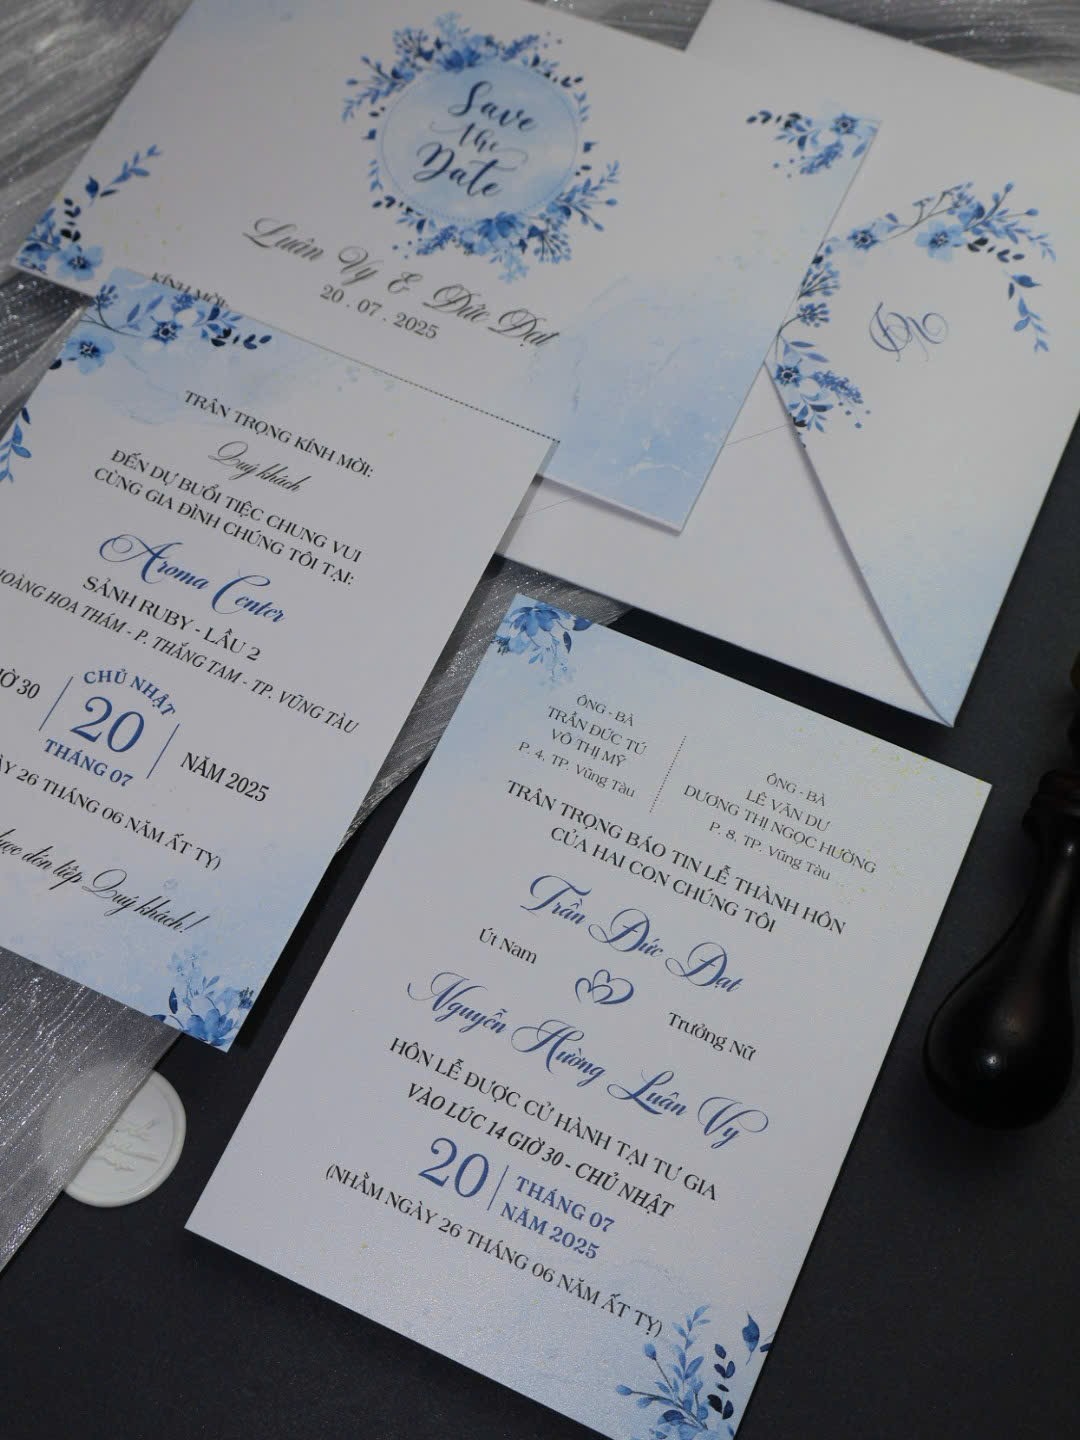 Save
the
Date
Luân Vy & Đức Đạt
20 . 07 . 2025
KÍNH MỜI:
TRÂN TRỌNG KÍNH MỜI:
Quý khách
ĐẾN DỰ BUỔI TIỆC CHUNG VUI
CÙNG GIA ĐÌNH CHÚNG TÔI TẠI:
Aroma Center
SẢNH RUBY - LẦU 2
HOÀNG HOA THÁM - P. THẮNG TAM - TP. VŨNG TÀU
30
CHỦ NHẬT
20
THÁNG 07
NĂM 2025
26 THÁNG 06 NĂM ẤT TỴ)
đón tiếp Quý khách!
ÔNG - BÀ
TRẦN ĐỨC TÚ
VÕ THỊ MỸ
P. 4. TP. Vũng Tàu
ÔNG - BÀ
LÊ VĂN DƯ
DƯƠNG THỊ NGỌC HƯỜNG
P. 8. TP. Vũng Tàu
TRÂN TRỌNG BÁO TIN LỄ THÀNH HÔN
CỦA HAI CON CHÚNG TÔI
Trần Đức Đạt
Út Nam
Trưởng Nữ
Nguyễn Hường Luân Vy
HÔN LỄ ĐƯỢC CỬ HÀNH TẠI TƯ GIA
VÀO LÚC 14 GIỜ 30 - CHỦ NHẬT
20
THÁNG 07
NĂM 2025
(NHẰM NGÀY 26 THÁNG 06 NĂM ẤT TỴ)